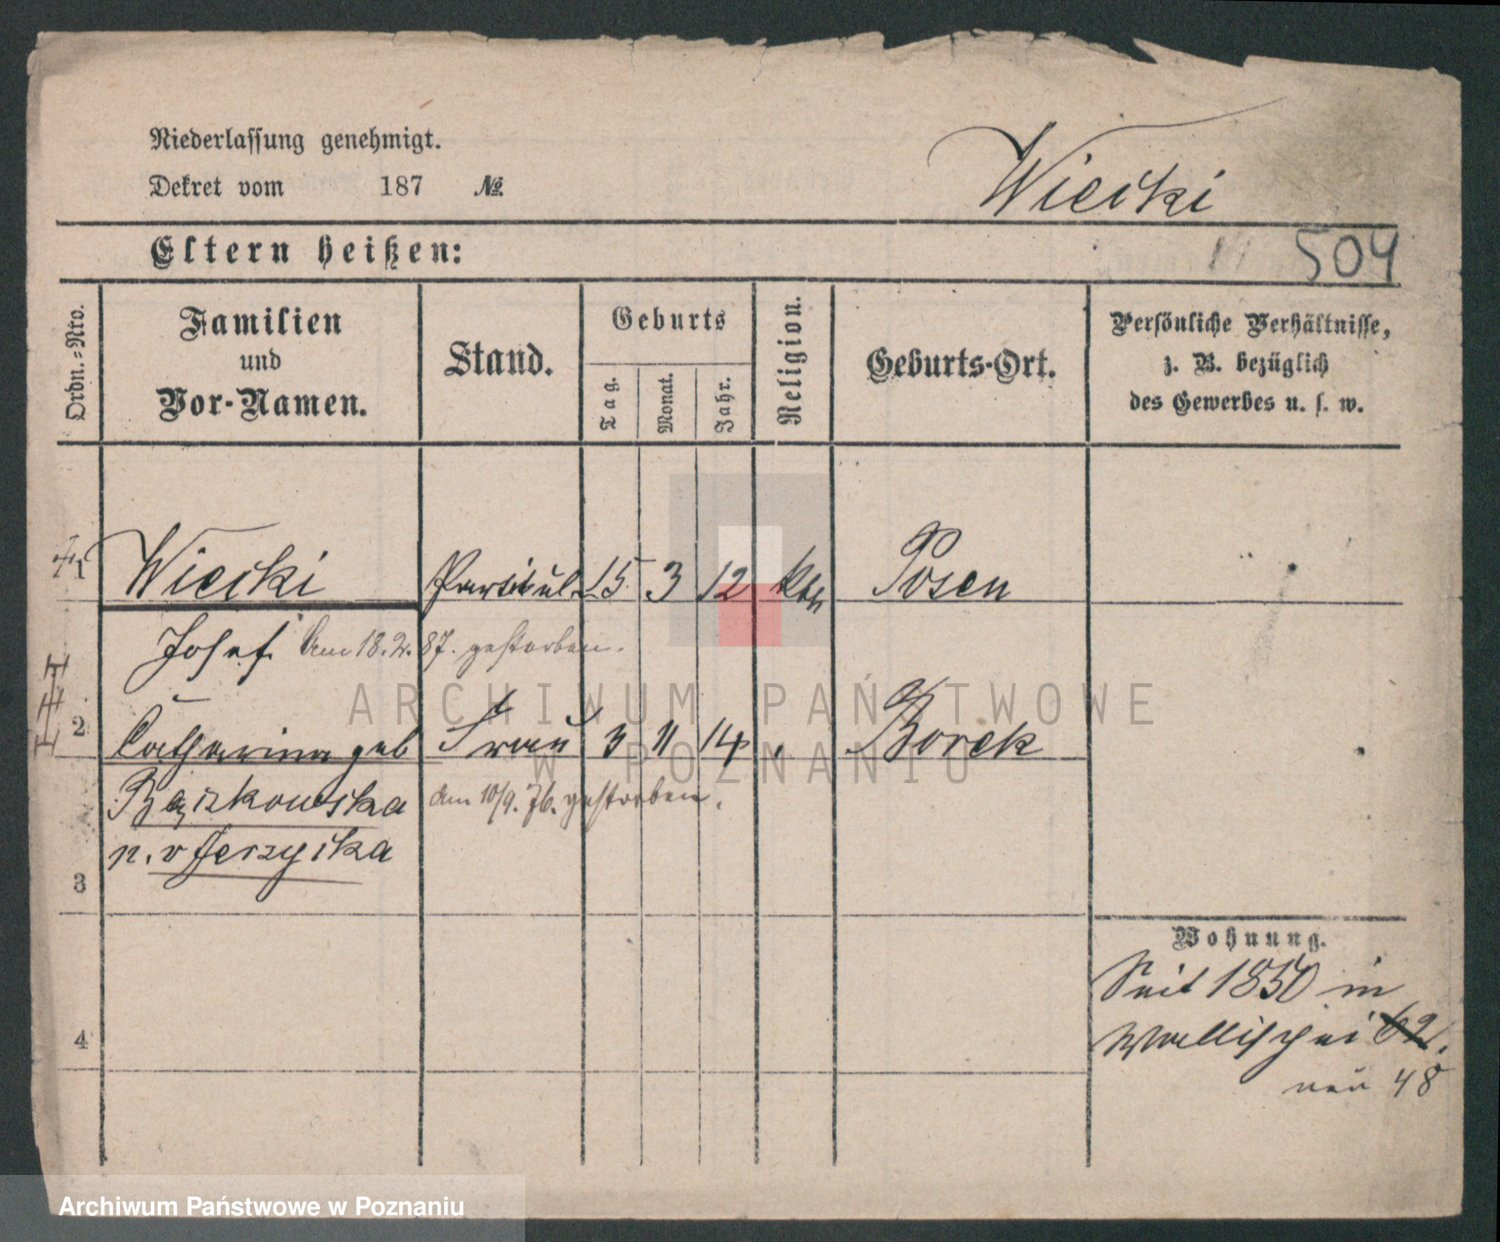 Niederlassung genehmigt.
Dekret vom 187 №
Wiecki
Eltern heißen:
504
Ordn.-Nro.
Familien
und
Vor-Namen.
Stand.
Geburts
Tag.
Monat.
Jahr.
Religion.
Geburts-Ort.
Persönliche Verhältnisse,
z. B. bezüglich
des Gewerbes u. s. w.
1 Wiecki Partikul. 15 3 12 kth Posen
Josef. Am 18.2.87. gestorben.
ARCHIWUM PAŃSTWOWE
W POZNANIU
2 Catharina geb Frau 11 14 Borek
am 10/9.76. gestorben.
n. v Jerzycka
3
Wohnung.
Seit 1850 in
4 Wallischei 62.
neu 48
Archiwum Państwowe w Poznaniu